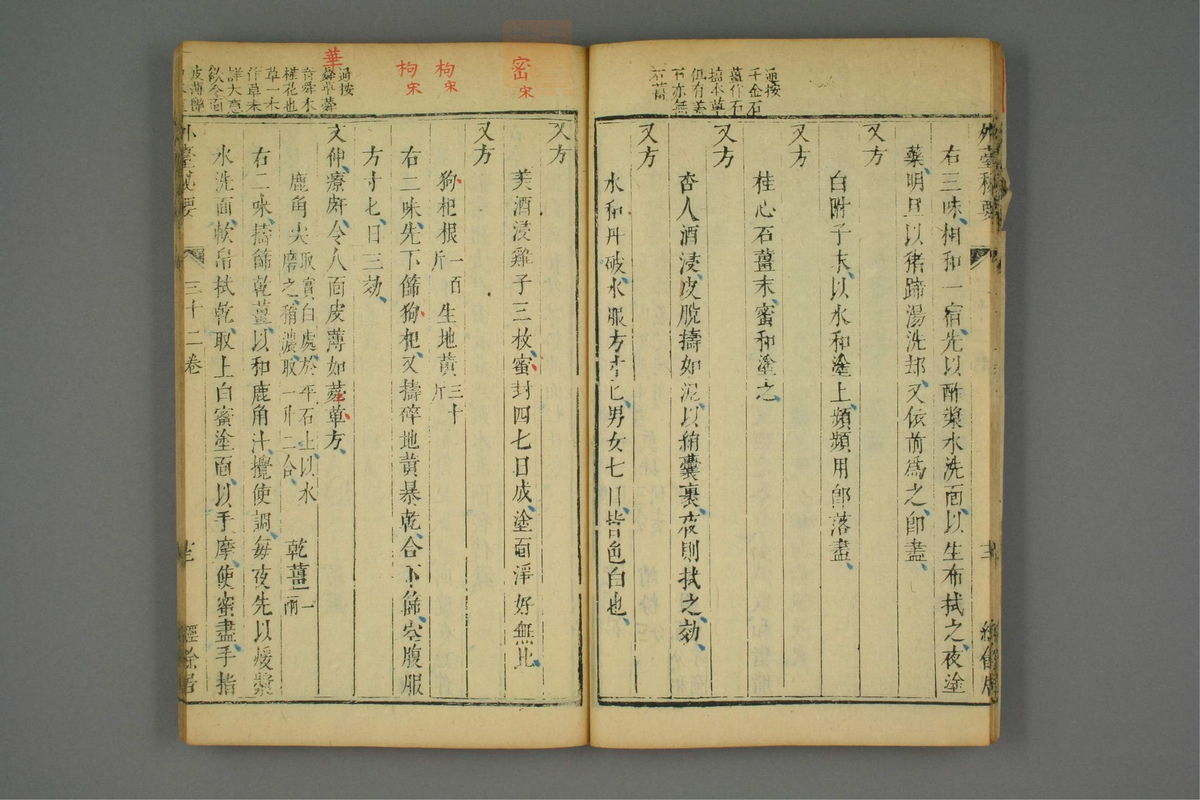 通按
千金石
薑作石
檮本草
但有姜
石亦無
石薑
外臺秘要
右三味相和一宿先以酢漿水洗面以生布拭之夜塗
藥明旦以豬蹄湯洗却又依前為之即盡
又方
白附子末以水和塗上頻頻用即落盡
又方
桂心石薑末蜜和塗之
又方
杏人酒浸皮脫擣如泥以絹囊裹夜則拭之効
又方
水和丹砂水服方寸匕男女七日皆色白也
密宋
枸宋
枸宋
華
通按
蕣華蕣
音舜木
槿花也
草一木
作草未
詳大意
欲令面
皮薄
又方
美酒浸雞子三枚蜜封四七日成塗面淨好無比
又方
狗杞根一百斤 生地黃三十斤
右二味先下篩狗杞又擣碎地黃暴乾合下篩空腹服
方寸匕日三効
文仲療䵟令人面皮薄如蕣華方
鹿角尖取實白處於平石上以水磨之稍濃取一升二合 乾薑一兩
右二味擣篩乾薑以和鹿角汁攪使調每夜先以煖漿
水洗面軟帛拭乾取上白蜜塗面以手摩使蜜盡手指
外臺秘要 三十二卷 經餘居